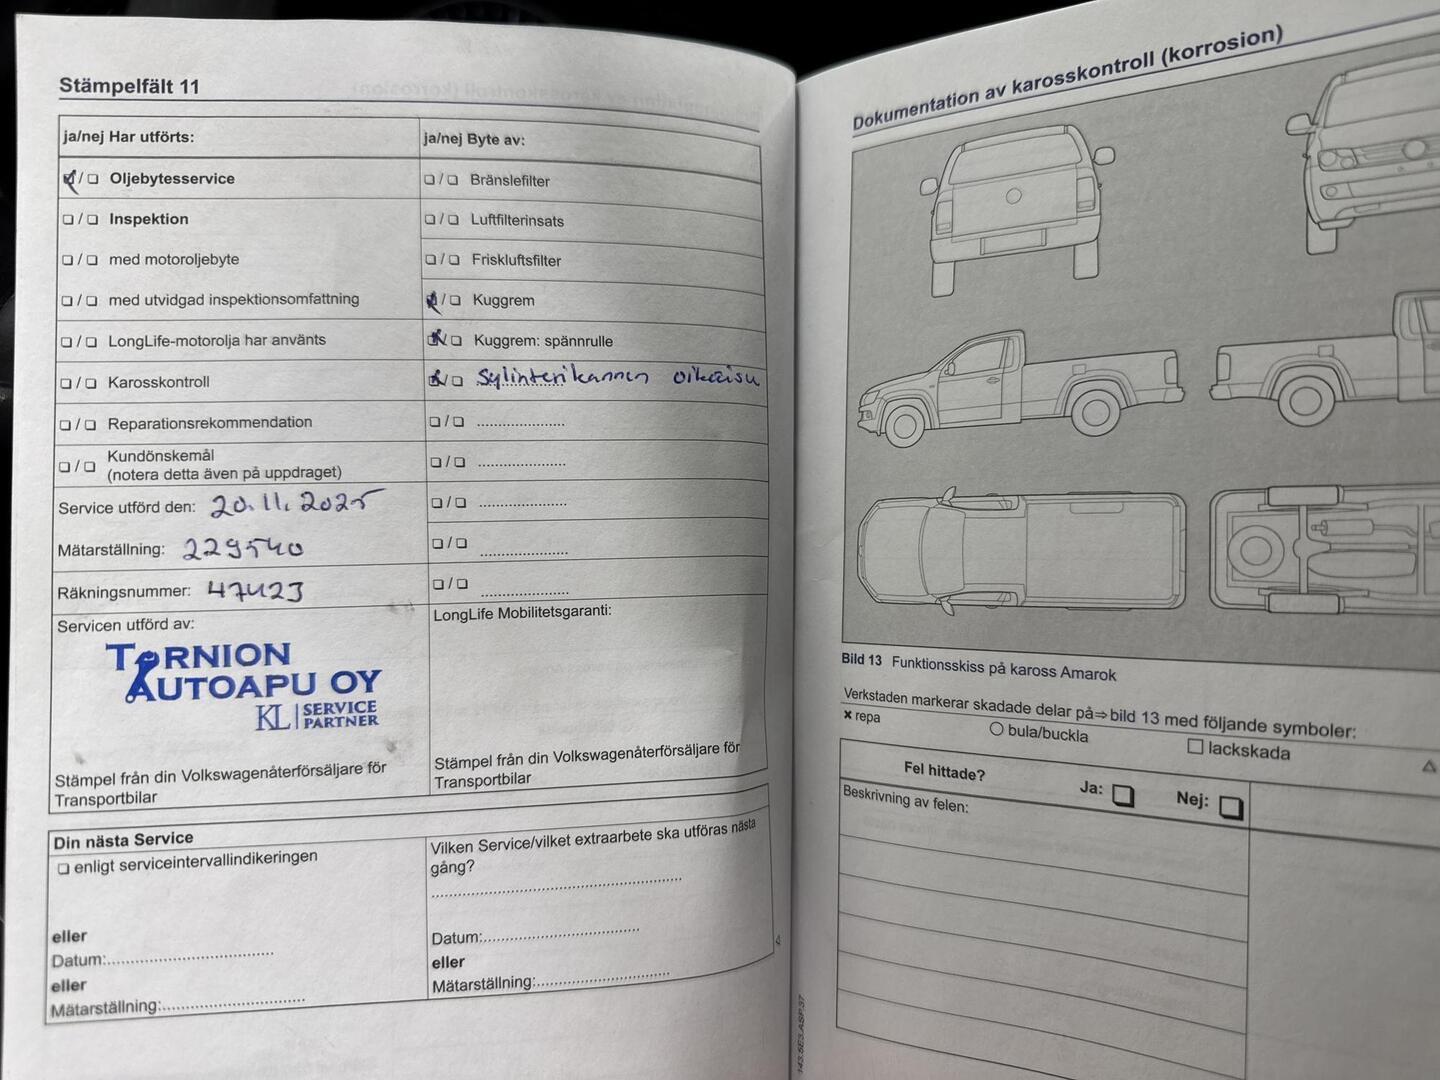 Stämpelfält 11
ja/nej Har utförts:
❏ / ❏ Oljebytesservice
❏ / ❏ Inspektion
❏ / ❏ med motoroljebyte
❏ / ❏ med utvidgad inspektionsomfattning
❏ / ❏ LongLife-motorolja har använts
❏ / ❏ Karosskontroll
❏ / ❏ Reparationsrekommendation
❏ / ❏ Kundönskemål
(notera detta även på uppdraget)
Service utförd den: 20.11.2025
Mätarställning: 229540
Räkningsnummer: 47423
Servicen utförd av:
TORNION
AUTOAPU OY
KL SERVICE
PARTNER
Stämpel från din Volkswagenåterförsäljare för
Transportbilar
ja/nej Byte av:
❏ / ❏ Bränslefilter
❏ / ❏ Luftfilterinsats
❏ / ❏ Friskluftsfilter
❏ / ❏ Kuggrem
❏ / ❏ Kuggrem: spännrulle
❏ / ❏ Sylinterikannen oikaisu
❏ / ❏ ......................
❏ / ❏ ......................
❏ / ❏ ......................
❏ / ❏ ......................
❏ / ❏ ......................
LongLife Mobilitetsgaranti:
Stämpel från din Volkswagenåterförsäljare för
Transportbilar
Din nästa Service
❏ enligt serviceintervallindikeringen
eller
Datum:..........................................
eller
Mätarställning:....................................
Vilken Service/vilket extraarbete ska utföras nästa
gång?
................................................................
Datum:.......................................
eller
Mätarställning:.................................
Dokumentation av karosskontroll (korrosion)
Bild 13 Funktionsskiss på kaross Amarok
Verkstaden markerar skadade delar på⇒bild 13 med följande symboler:
× repa
○ bula/buckla
□ lackskada
Fel hittade?
Ja: ❏
Nej: ❏
Beskrivning av felen:
143.5E3.ASP.37